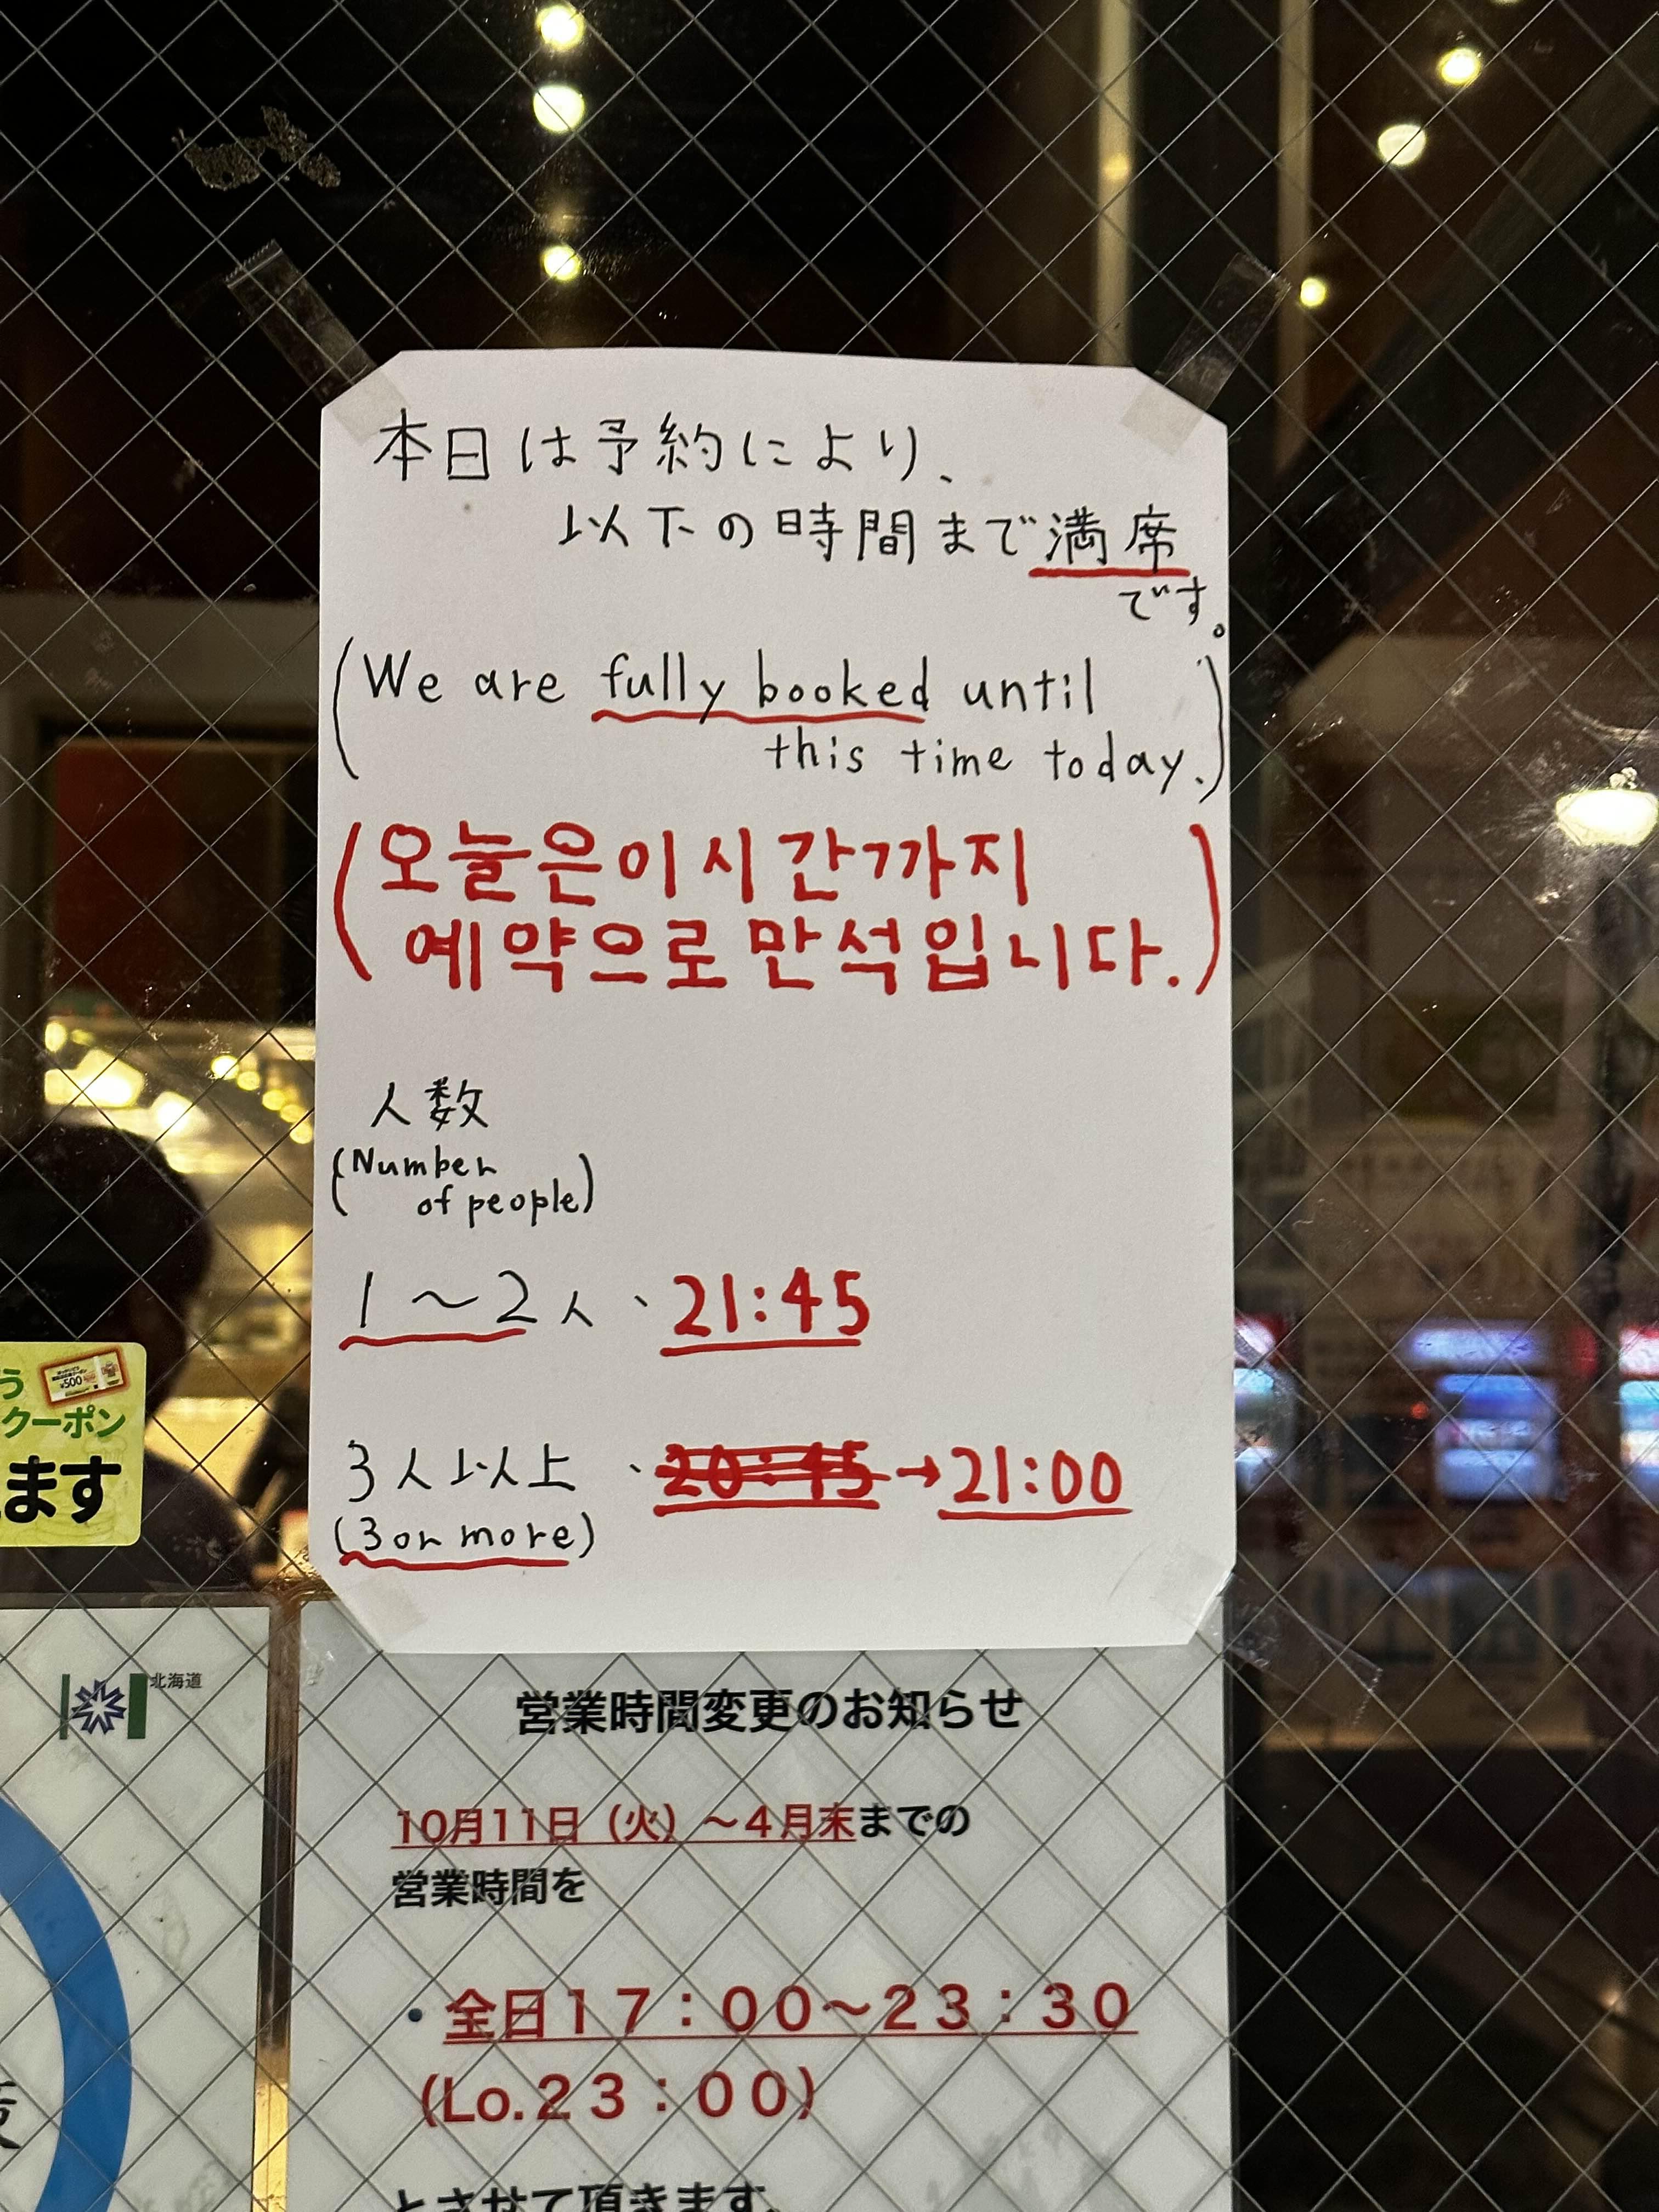 本日は予約により、
以下の時間まで満席
です。
(We are fully booked until
this time today.)
(오늘은이시간까지
예약으로만석입니다.)
人数
(Number
of people)
1～2人、21:45
3人以上、20:45→21:00
(3 or more)
¥500
クーポン
ます
北海道
営業時間変更のお知らせ
10月11日（火）～4月末までの
営業時間を
・全日17：00～23：30
(Lo.23：00)
とさせて頂きます。